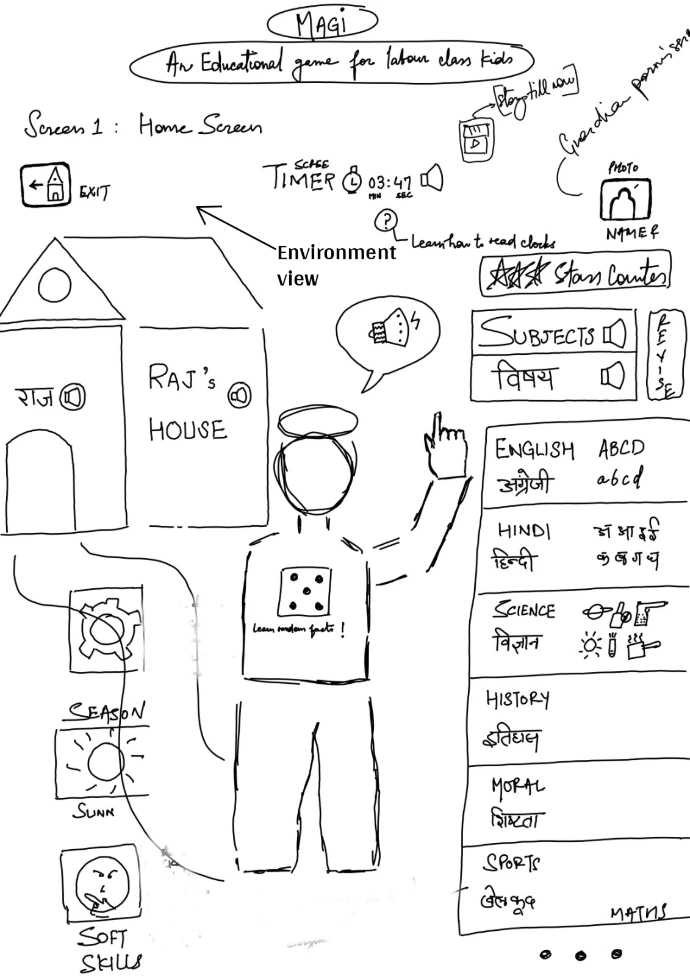 MAGI
An Educational game for labour class kids
Story till now
Guardian
Screen 1 : Home Screen
EXIT
SCREE
TIMER 03:47
MIN SEC
?
Learn how to read clocks
PHOTO
NAME &
Environment
view
Stars Counter
SUBJECTS
विषय
REVISE
राज
RAJ's
HOUSE
ENGLISH ABCD
अंग्रेजी abcd
HINDI अ आ इ ई
हिन्दी क ख ग घ
SCIENCE
विज्ञान
HISTORY
इतिहास
MORAL
शिष्टता
SPORTS
खेल कूद
MATHS
Learn random facts !
SEASON
SUNN
SOFT
SKILLS